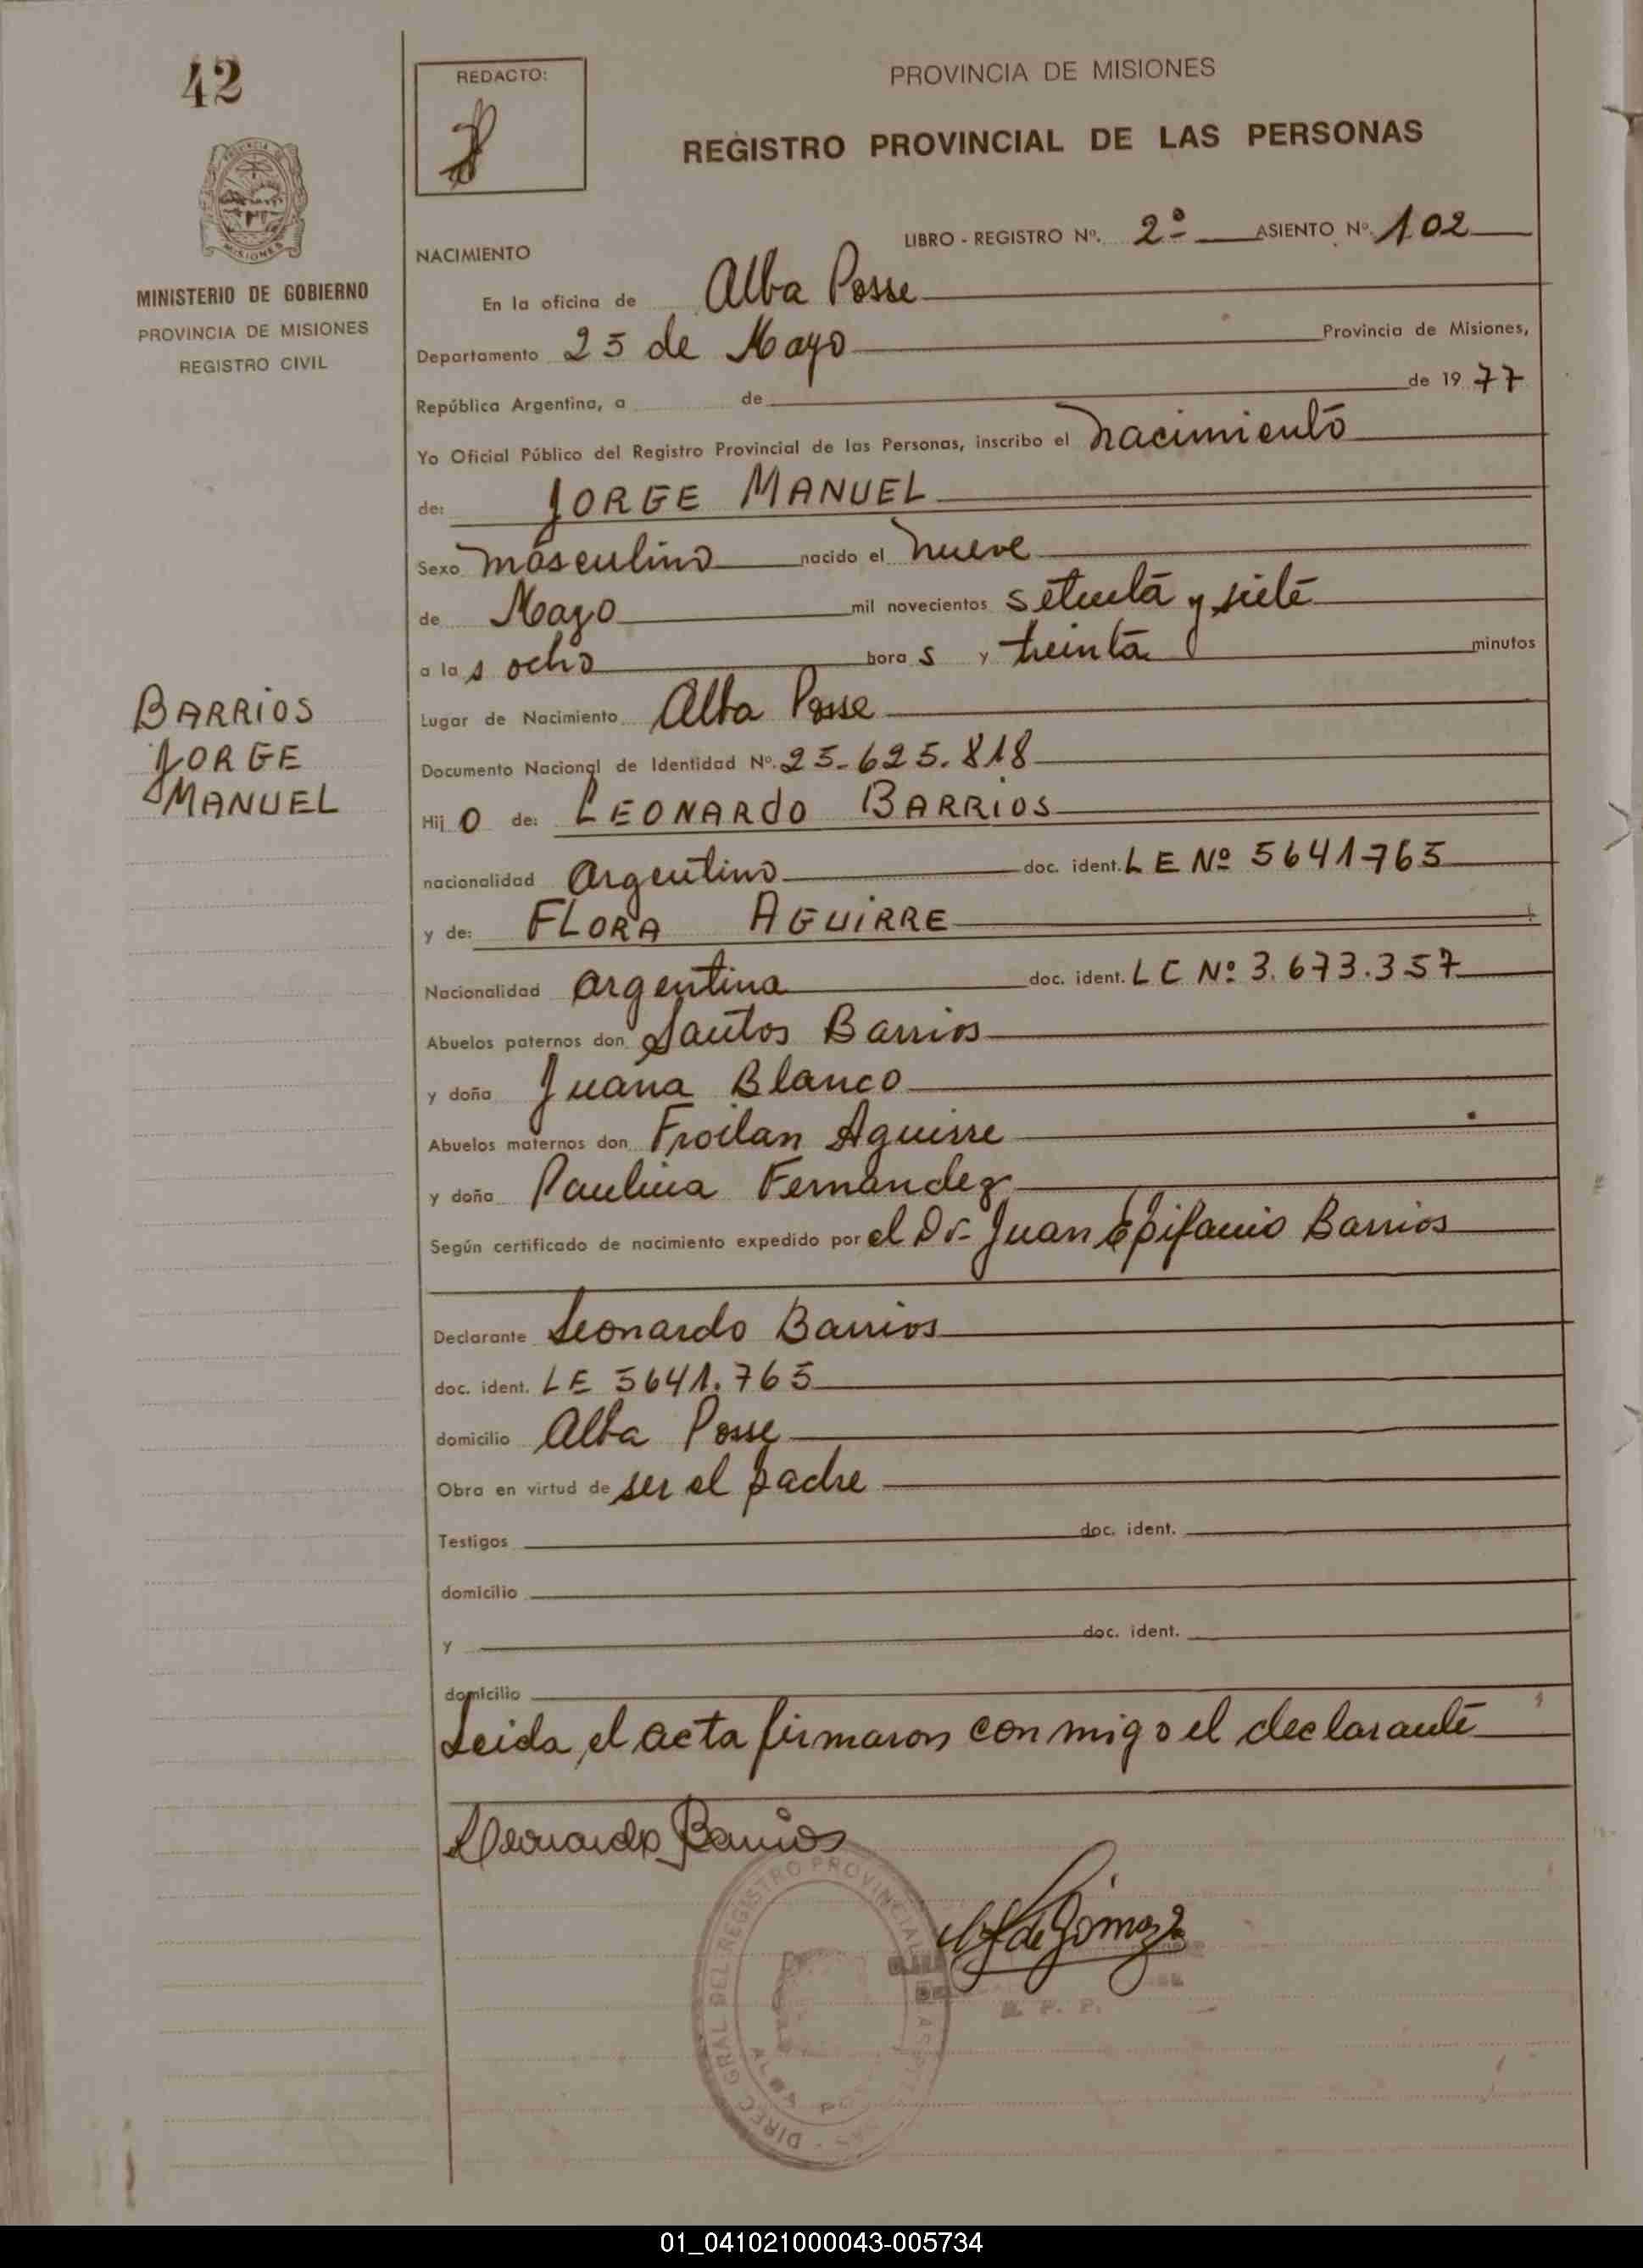 42
REDACTO:
PROVINCIA DE MISIONES
REGISTRO PROVINCIAL DE LAS PERSONAS
MISIONES
MINISTERIO DE GOBIERNO
PROVINCIA DE MISIONES
REGISTRO CIVIL
LIBRO - REGISTRO Nº. 2º ASIENTO Nº. 102
NACIMIENTO
En la oficina de Alba Posse
Departamento 25 de Mayo Provincia de Misiones,
República Argentina, a de de 1977
Yo Oficial Público del Registro Provincial de las Personas, inscribo el nacimiento
de: JORGE MANUEL
Sexo masculino nacido el nueve
de Mayo mil novecientos setenta y siete
a las ocho horas y treinta minutos
BARRIOS
JORGE
MANUEL
Lugar de Nacimiento Alba Posse
Documento Nacional de Identidad Nº. 25.625.818
Hijo de: LEONARDO BARRIOS
nacionalidad argentino doc. ident. LE Nº 5641765
y de: FLORA AGUIRRE
Nacionalidad argentina doc. ident. LC Nº 3.673.357
Abuelos paternos don Santos Barrios
y doña Juana Blanco
Abuelos maternos don Froilan Aguirre
y doña Paulina Fernandez
Según certificado de nacimiento expedido por el Dr. Juan Epifanio Barrios
Declarante Leonardo Barrios
doc. ident. LE 5641.765
domicilio Alba Posse
Obra en virtud de ser el padre
Testigos doc. ident.
domicilio
y doc. ident.
domicilio
Leida el acta firmaron conmigo el declarante
Leonardo Barrios
de Gómez
DIREC GRAL DEL REGISTRO PROVINCIAL
ALBA
01_041021000043-005734